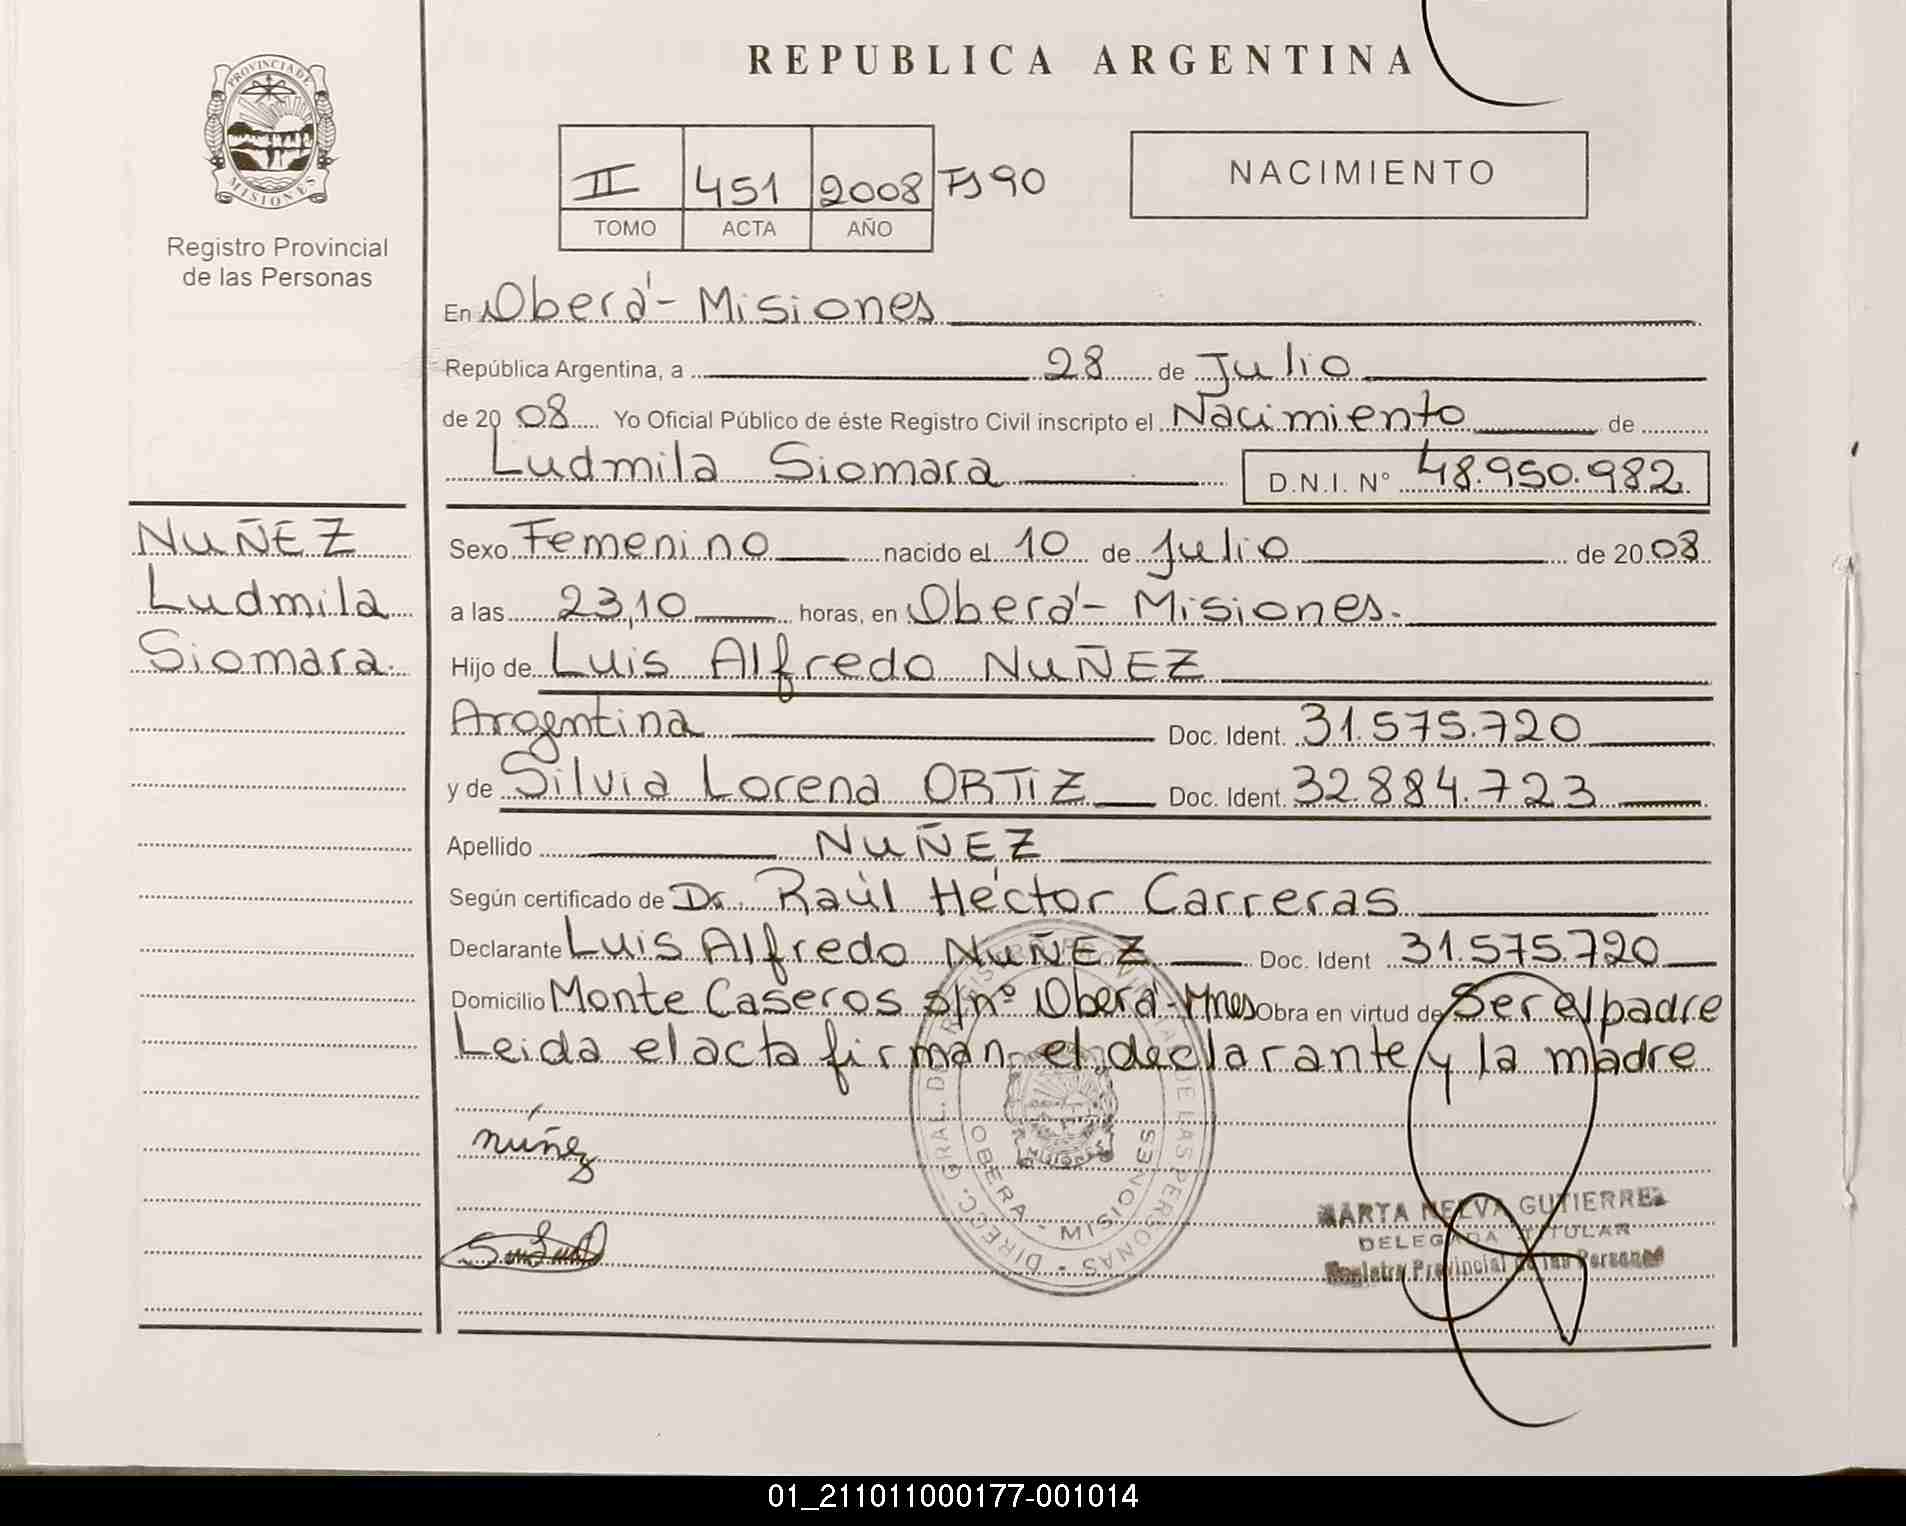 REPUBLICA ARGENTINA
PROVINCIA DE
MISIONES
Registro Provincial
de las Personas
II 451 2008 Fs 90
TOMO ACTA AÑO
NACIMIENTO
En Oberá - Misiones
República Argentina, a 28 de Julio
de 20 08 Yo Oficial Público de éste Registro Civil inscripto el Nacimiento de
Ludmila Siomara D.N.I. N° 48.950.982
NUÑEZ
Ludmila
Siomara.
Sexo Femenino nacido el 10 de Julio de 20 08
a las 23,10 horas, en Oberá - Misiones.
Hijo de Luis Alfredo NUÑEZ
Argentina Doc. Ident. 31.575.720
y de Silvia Lorena ORTIZ Doc. Ident. 32.884.723
Apellido NUÑEZ
Según certificado de Dr. Raúl Héctor Carreras
Declarante Luis Alfredo NUÑEZ Doc. Ident 31.575.720
Domicilio Monte Caseros s/nº Oberá - Mnes Obra en virtud de Ser el padre
Leida el acta firman el declarante y la madre
núñez
DIRECC. GRAL. DE LAS PERSONAS
OBERA - MISIONES
MISIONES
MARTA NELVA GUTIERREZ
DELEGADA TITULAR
Registro Provincial de las Personas
01_211011000177-001014